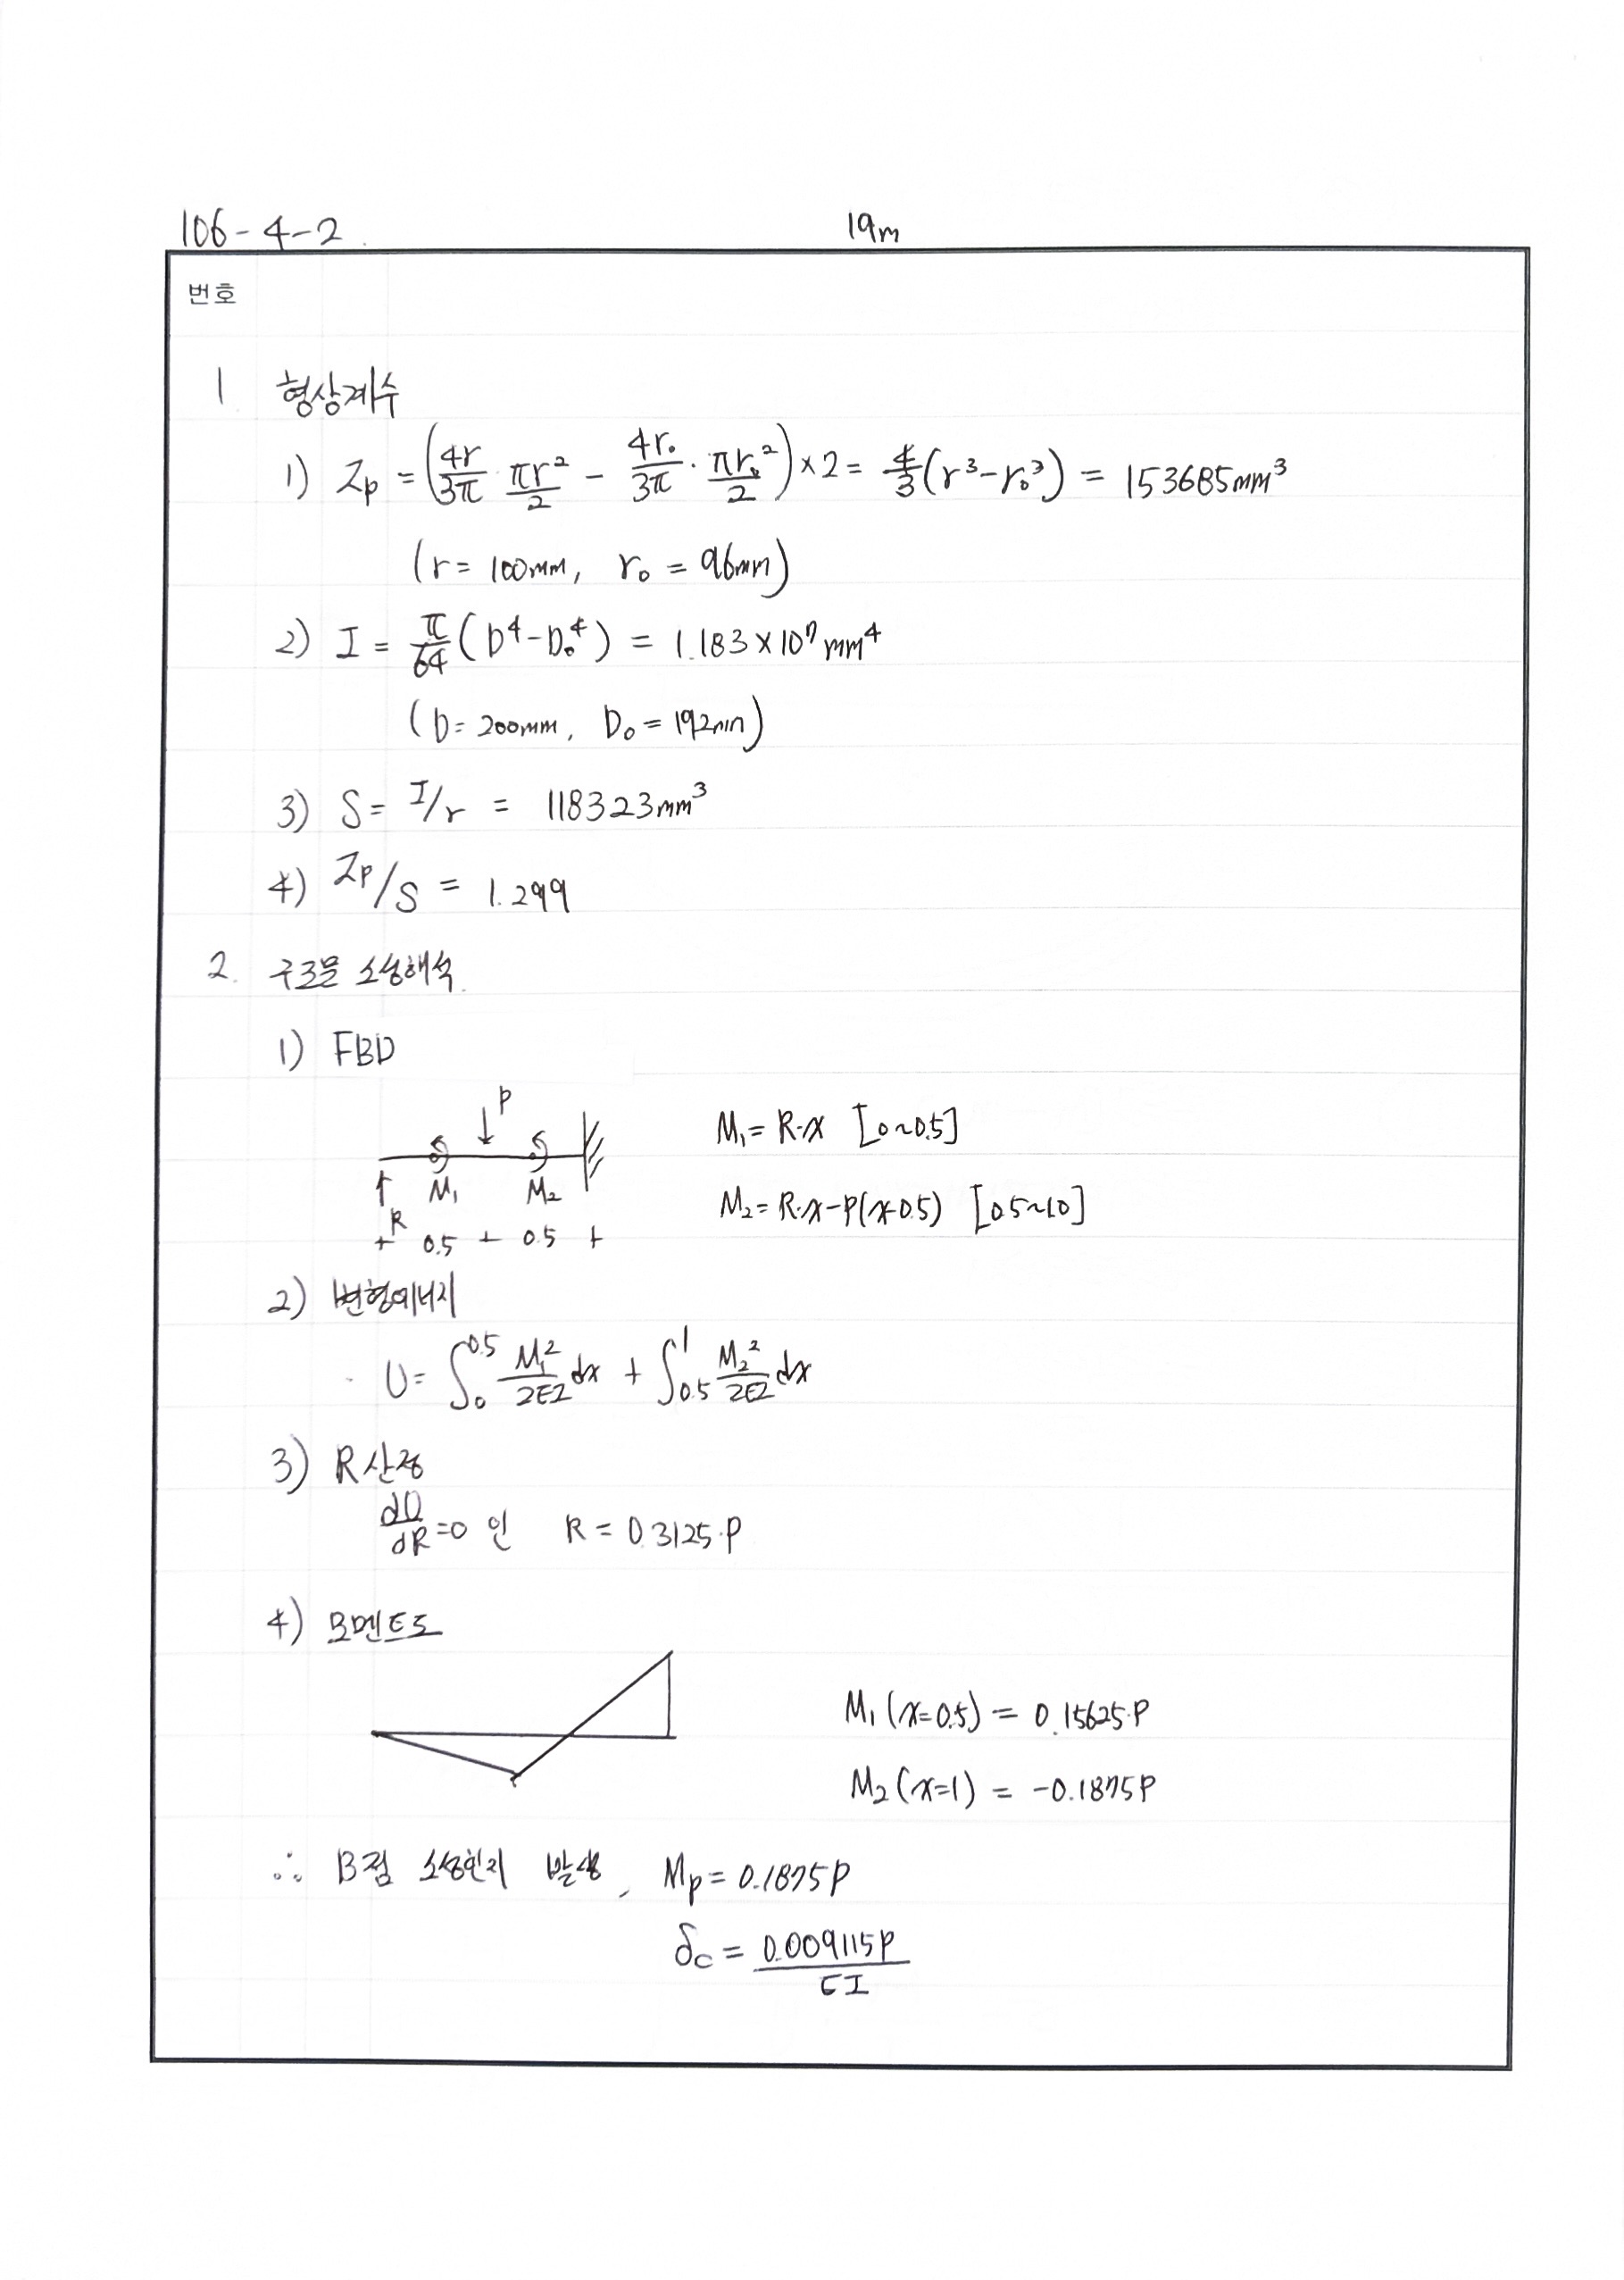 106-4-2 19m
번호
1 형상계수
1) Zp = (4r/3π · πr²/2 - 4r₀/3π · πr₀²/2) × 2 = 4/3(r³-r₀³) = 153685mm³
(r = 100mm, r₀ = 96mm)
2) I = π/64 (D⁴-D₀⁴) = 1.183×10⁷mm⁴
(D = 200mm, D₀ = 192mm)
3) S = I/r = 118323mm³
4) Zp/S = 1.299
2. 구조물 소성해석.
1) FBD
P
M₁ = R·x [0~0.5]
M₁ M₂
R
M₂ = R·x-P(x-0.5) [0.5~1.0]
0.5 0.5
2) 변형에너지
U = ∫₀^0.5 M₁²/2EI dx + ∫0.5^1 M₂²/2EI dx
3) R 산정
dU/dR = 0 인 R = 0.3125·P
4) 모멘트도
M₁(x=0.5) = 0.15625·P
M₂(x=1) = -0.1875P
∴ B점 소성힌지 발생, Mp = 0.1875P
δc = 0.009115P/EI